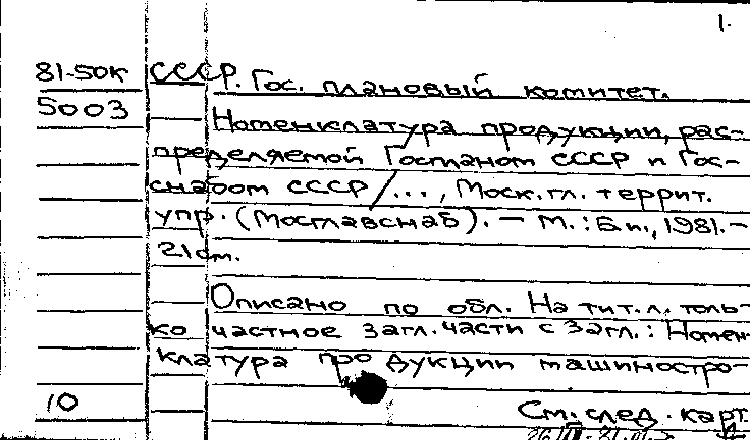 1.
81-50к СССР. Гос. плановый комитет.
5003
Номенклатура продукции, рас-
пределяемой Госпланом СССР и Гос-
снабом СССР /..., Моск. гл. террит.
упр. (Мосглавснаб). - М.: Б.и., 1981. -
21 см.
Описано по обл. На тит. л. толь-
ко частное загл. части с загл.: Номен-
клатура продукции машиностро-
10
См. след. карт.